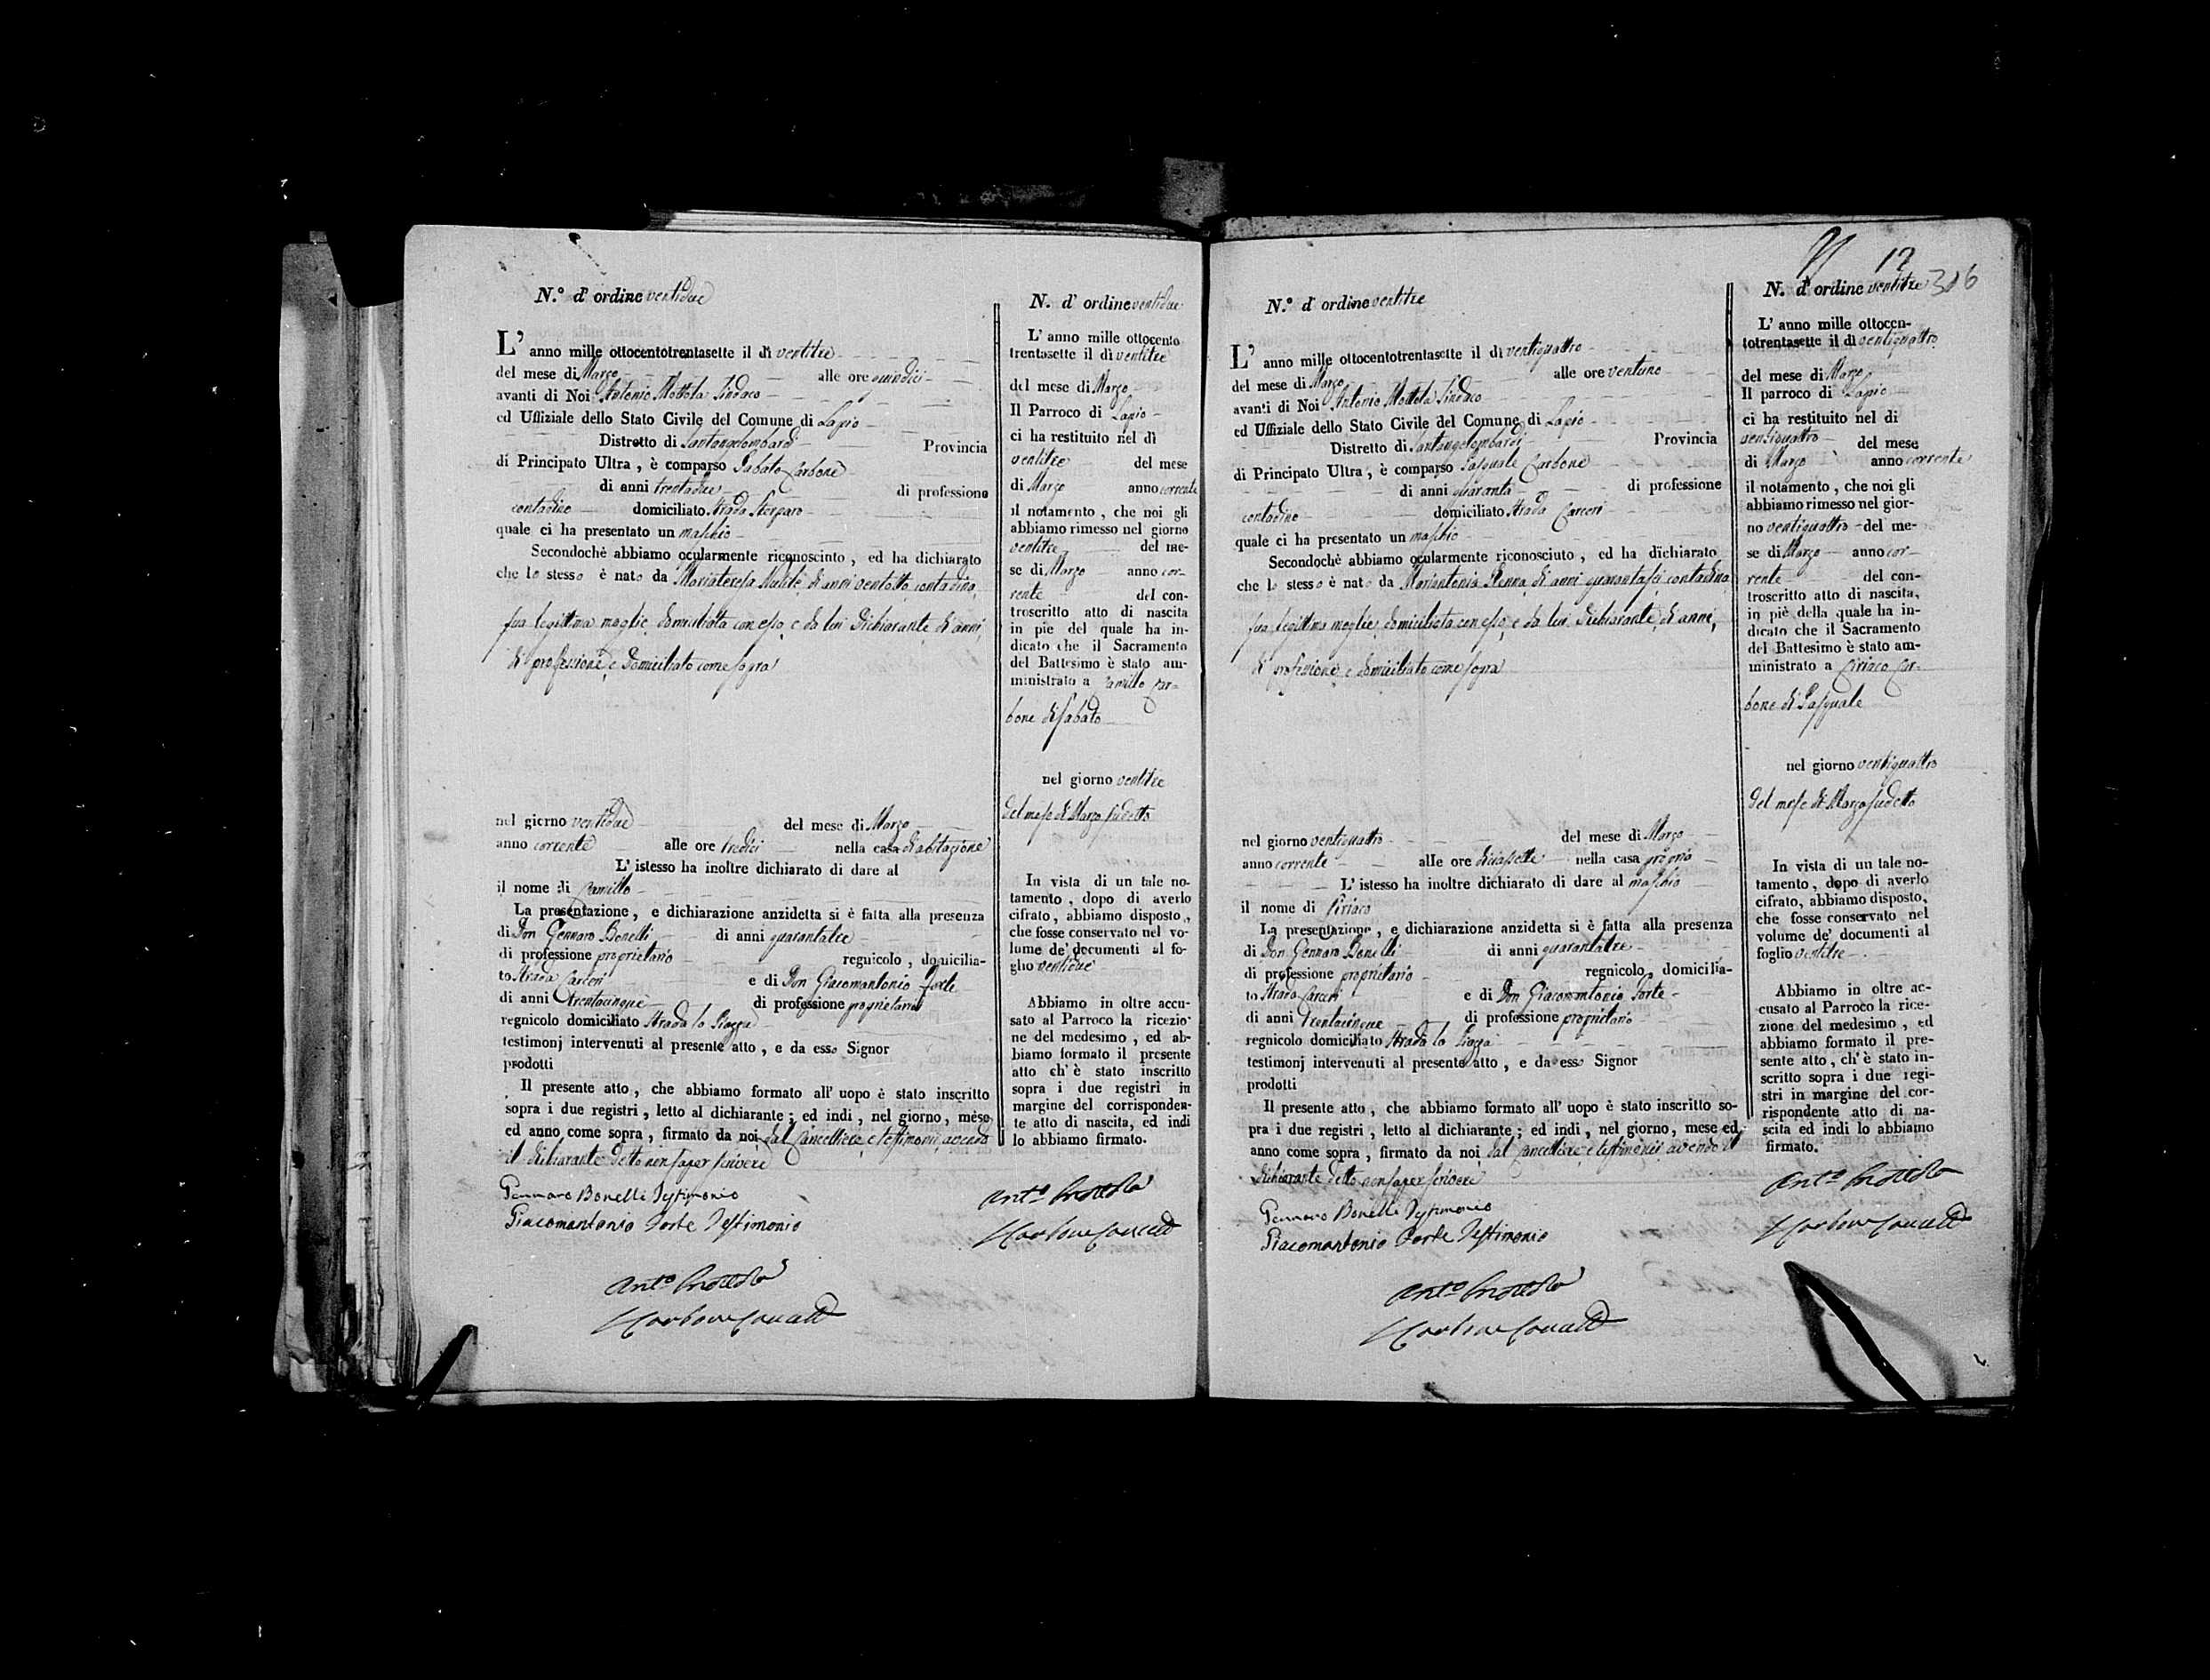 N.° d' ordine ventidue
L' anno mille ottocentotrentasette il dì ventitre
del mese di Marzo alle ore quindici
avanti di Noi Antonio Mottola Sindaco
ed Uffiziale dello Stato Civile del Comune di Lapio
Distretto di Santangelombardi Provincia
di Principato Ultra, è comparso Sabato Carbone
di anni trentadue di professione
contadino domiciliato Strada Sterparo
quale ci ha presentato un maschio
Secondochè abbiamo ocularmente riconosciuto, ed ha dichiarato
che lo stesso è nato da Mariateresa di anni ventotto contadina,
sua legittima moglie domiciliata con esso, e da lui Dichiarante di anni,
di professione, e Domiciliato come sopra
nel giorno ventidue del mese di Marzo
anno corrente alle ore tredici nella casa d'abitazione
L' istesso ha inoltre dichiarato di dare al
il nome di Camillo
La presentazione, e dichiarazione anzidetta si è fatta alla presenza
di Don Gennaro Bonelli di anni quarantatre
di professione proprietario regnicolo, domicilia-
to Strada Carceri e di Don Giacomantonio Forte
di anni trentacinque di professione proprietario
regnicolo domiciliato Strada lo Piazza
testimonj intervenuti al presente atto, e da esso Signor
prodotti
Il presente atto, che abbiamo formato all' uopo è stato inscritto
sopra i due registri, letto al dichiarante; ed indi, nel giorno, mese
ed anno come sopra, firmato da noi, dal Cancelliere, e testimonii avendo
il dichiarante detto non saper scrivere
Gennaro Bonelli Testimonio
Giacomantonio Forte Testimonio
Ant.o Mottola
Carbone
N. d' ordine ventidue
L' anno mille ottocento
trentasette il dì ventitre
del mese di Marzo
Il Parroco di Lapio
ci ha restituito nel dì
ventitre del mese
di Marzo anno corrente
il notamento, che noi gli
abbiamo rimesso nel giorno
ventitre del me-
se di Marzo anno cor-
rente del con-
troscritto atto di nascita
in piè del quale ha in-
dicato che il Sacramento
del Battesimo è stato am-
ministrato a Camillo Car-
bone di Sabato
nel giorno ventitre
del mese di Marzo sudetto
In vista di un tale no-
tamento, dopo di averlo
cifrato, abbiamo disposto,
che fosse conservato nel vo-
lume de' documenti al fo-
glio ventidue
Abbiamo in oltre accu-
sato al Parroco la ricezio-
ne del medesimo, ed ab-
biamo formato il presente
atto ch' è stato inscritto
sopra i due registri in
margine del corrisponden-
te atto di nascita, ed indi
lo abbiamo firmato.
Ant.o Mottola
Carbone
N.° d' ordine ventitre
L' anno mille ottocentotrentasette il dì ventiquattro
del mese di Marzo alle ore ventuno
avanti di Noi Antonio Mottola Sindaco
ed Uffiziale dello Stato Civile del Comune di Lapio
Distretto di Santangelombardi Provincia
di Principato Ultra, è comparso Pasquale Carbone
di anni quaranta di professione
contadino domiciliato Strada Carceri
quale ci ha presentato un maschio
Secondochè abbiamo ocularmente riconosciuto, ed ha dichiarato
che lo stesso è nato da Mariantonia Penna di anni quarantasei contadina
sua legittima moglie domiciliata con esso, e da lui Dichiarante di anni,
di professione, e domiciliato come sopra
nel giorno ventiquattro del mese di Marzo
anno corrente alle ore diciassette nella casa propria
L' istesso ha inoltre dichiarato di dare al maschio
il nome di Ciriaco
La presentazione, e dichiarazione anzidetta si è fatta alla presenza
di Don Gennaro Bonelli di anni quarantatre
di professione proprietario regnicolo, domicilia-
to Strada Carceri e di Don Giacomantonio Forte
di anni trentacinque di professione proprietario
regnicolo domiciliato Strada lo Piazza
testimonj intervenuti al presente atto, e da esso Signor
prodotti
Il presente atto, che abbiamo formato all' uopo è stato inscritto so-
pra i due registri, letto al dichiarante; ed indi, nel giorno, mese ed
anno come sopra, firmato da noi, dal Cancelliere, e testimonii avendo il
dichiarante detto non saper scrivere
Gennaro Bonelli Testimonio
Giacomantonio Forte Testimonio
Ant.o Mottola
Carbone
12
316
N. d' ordine ventitre
L' anno mille ottocen-
totrentasette il dì ventiquattro
del mese di Marzo
Il parroco di Lapio
ci ha restituito nel dì
ventiquattro del mese
di Marzo anno corrente
il notamento, che noi gli
abbiamo rimesso nel gior-
no ventiquattro del me-
se di Marzo anno cor-
rente del con-
troscritto atto di nascita,
in piè della quale ha in-
dicato che il Sacramento
del Battesimo è stato am-
ministrato a Ciriaco Car-
bone di Pasquale
nel giorno ventiquattro
del mese di Marzo sudetto
In vista di un tale no-
tamento, dopo di averlo
cifrato, abbiamo disposto,
che fosse conservato nel
volume de' documenti al
foglio ventitre
Abbiamo in oltre ac-
cusato al Parroco la rice-
zione del medesimo, ed
abbiamo formato il pre-
sente atto, ch' è stato in-
scritto sopra i due regi-
stri in margine del cor-
rispondente atto di na-
scita ed indi lo abbiamo
firmato.
Ant.o Mottola
Carbone